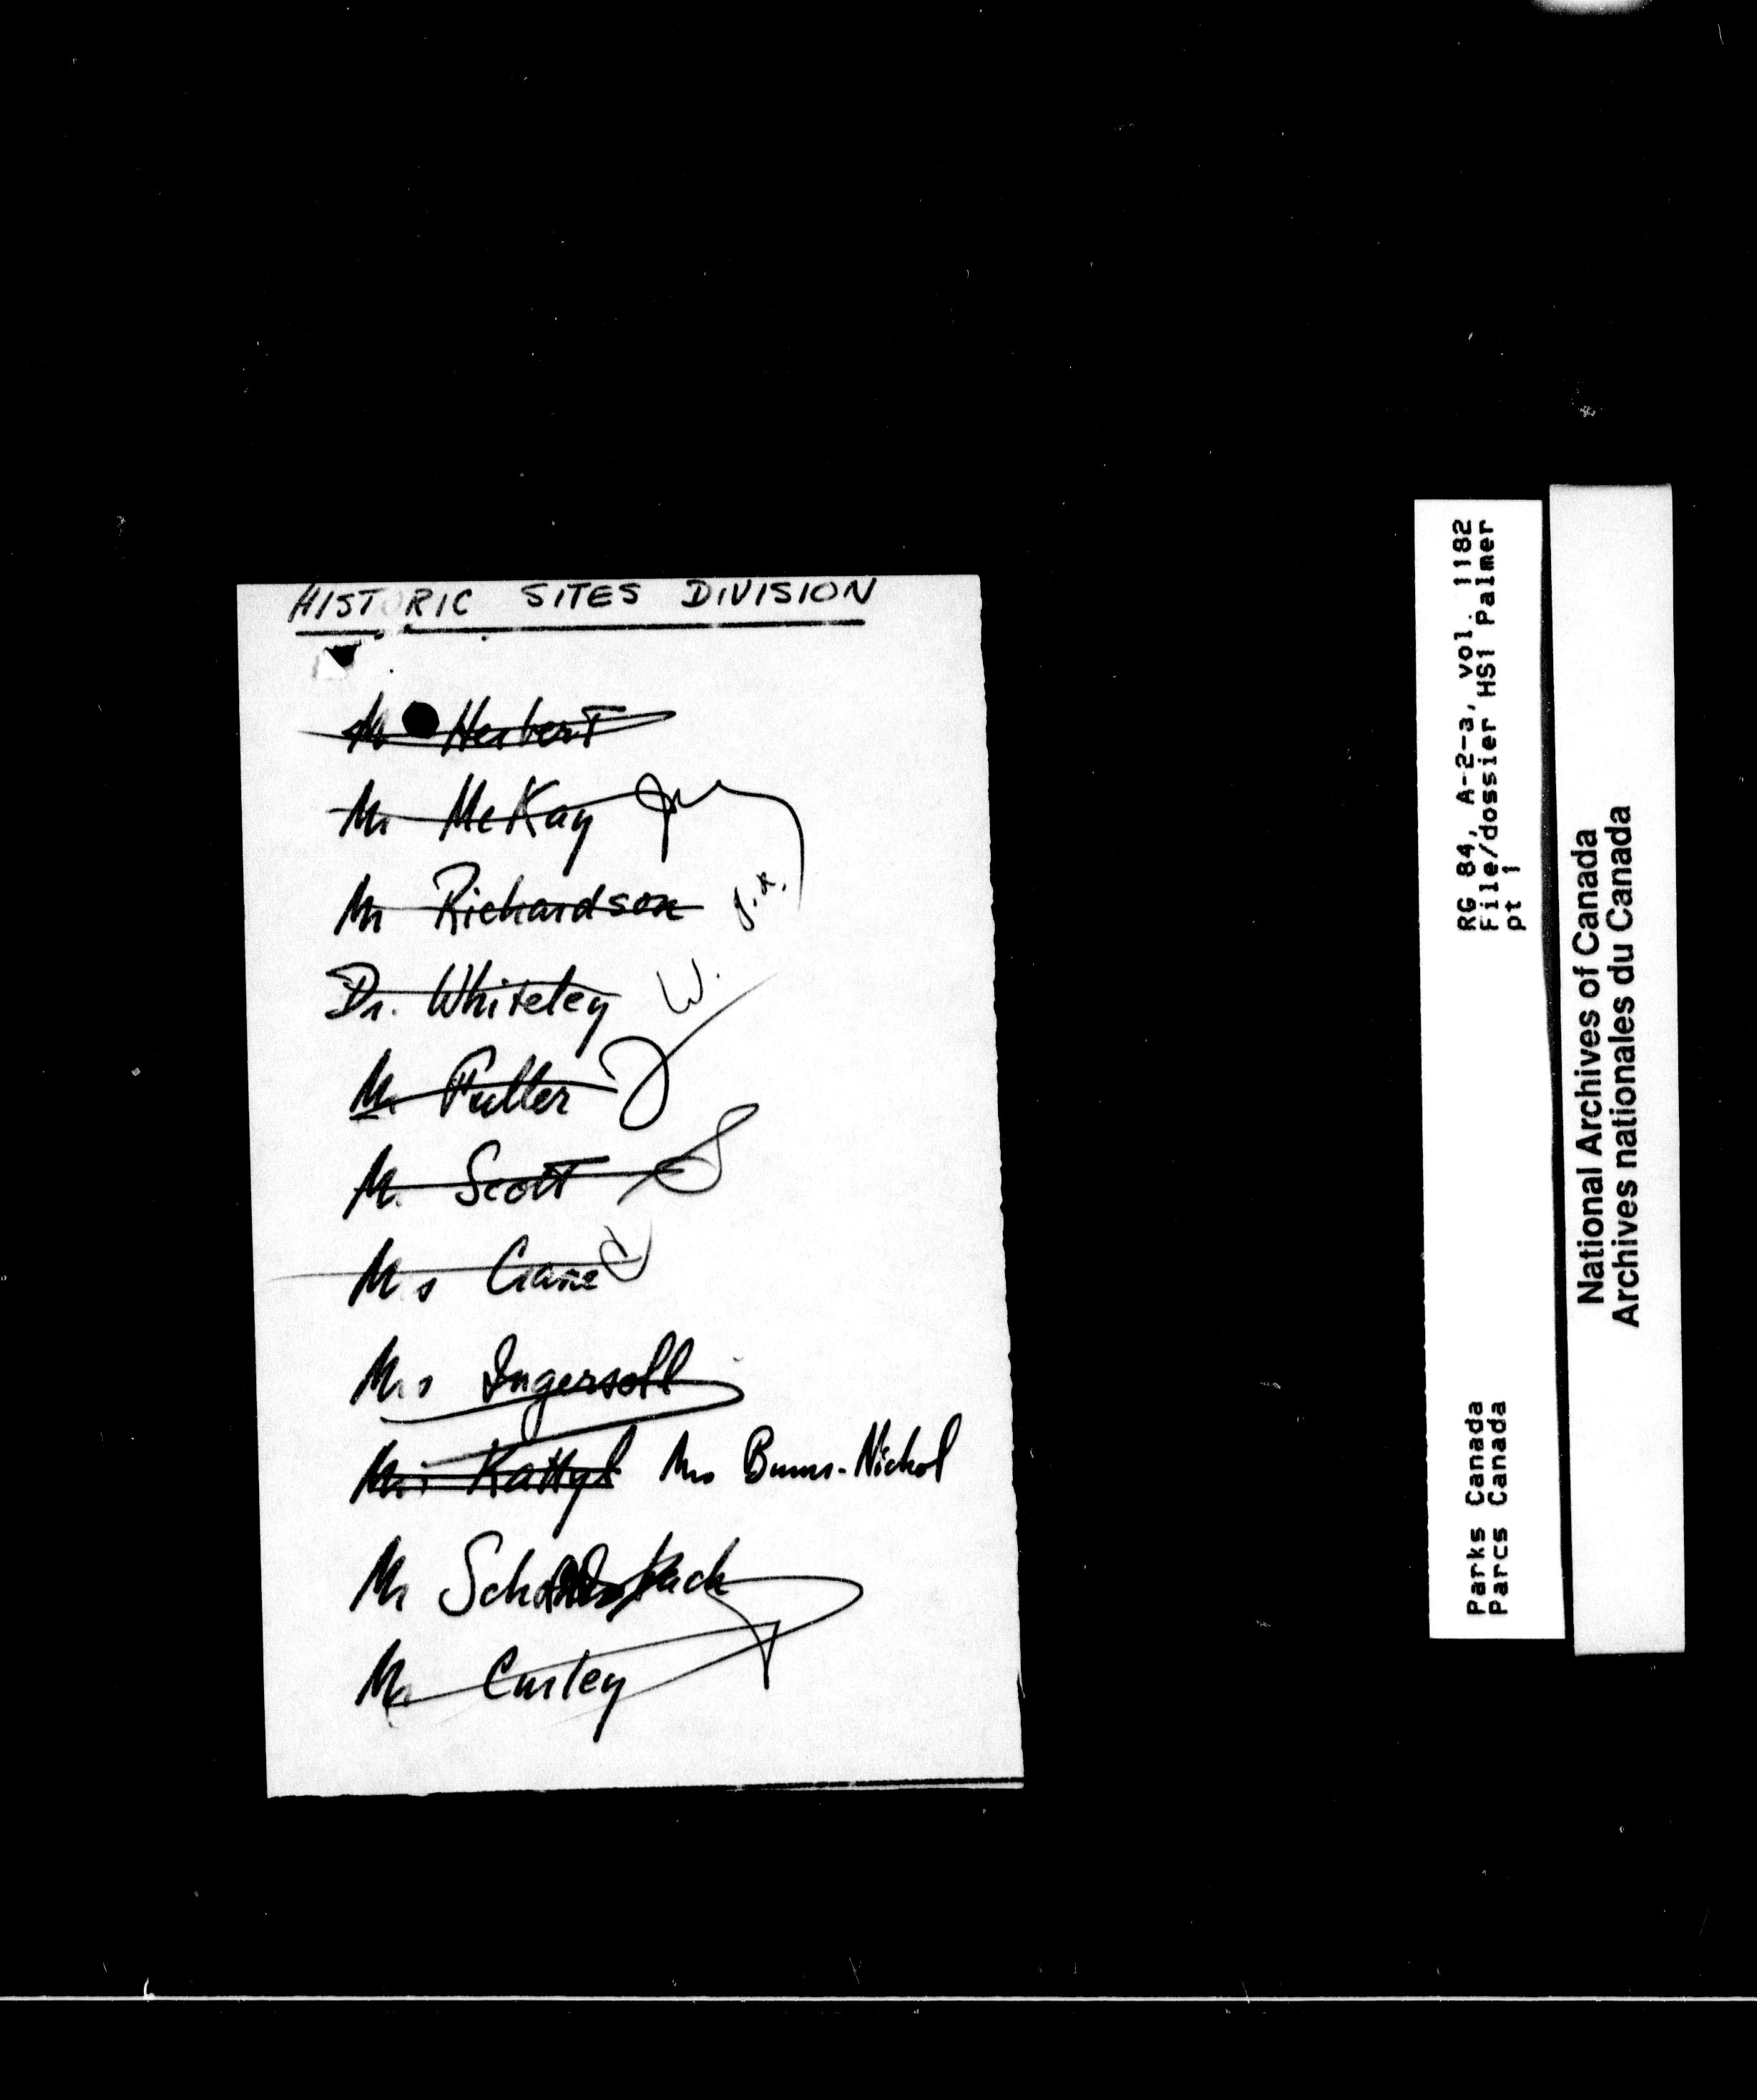 HISTORIC SITES DIVISION
Mr Herbert
Mr McKay
Mr Richardson
Dr. Whiteley W.
Mr Fuller
Mr Scott S
Mrs Crane
Mrs Ingersoll
Mrs Burns-Nichol
Mr
Mr Curley
RG 84, A-2-a, vol. 1182
File/dossier HS1 Palmer
pt 1
Parks Canada
Parcs Canada
National Archives of Canada
Archives nationales du Canada